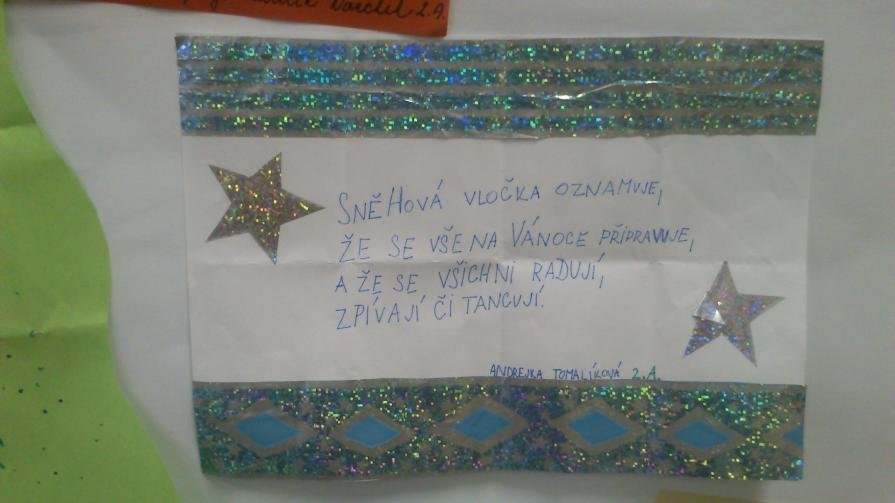 2.A.
SNĚHOVÁ VLOČKA OZNAMUJE,
ŽE SE VŠE NA VÁNOCE PŘIPRAVUJE,
A ŽE SE VŠICHNI RADUJÍ,
ZPÍVAJÍ ČI TANCUJÍ.
ANDREJKA TOMALÍKOVÁ 2.A.